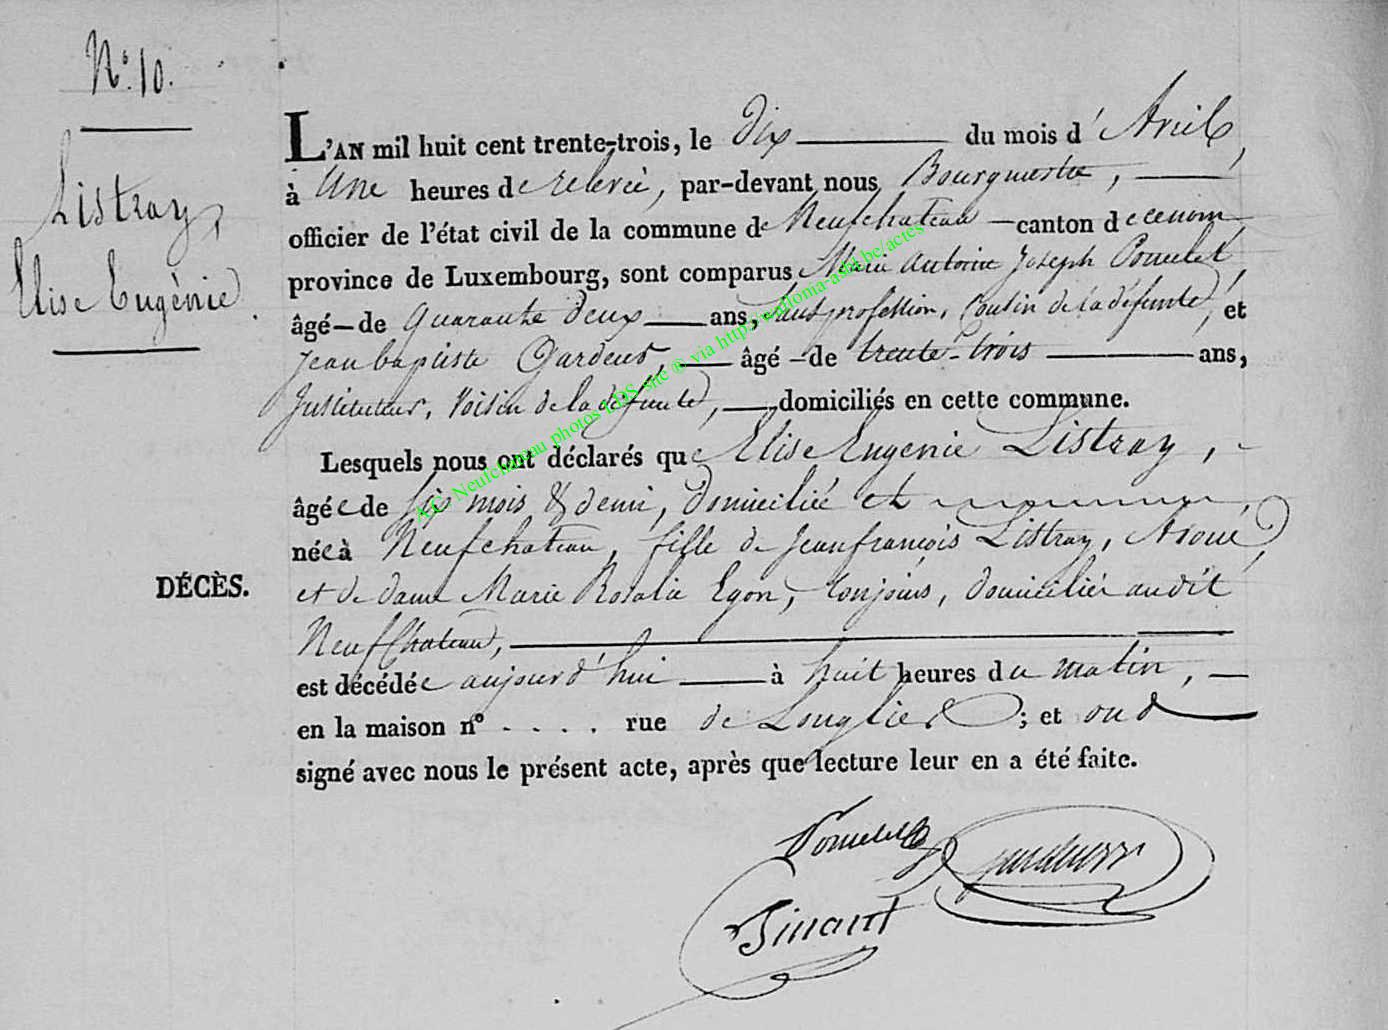 N° 10.
Listray,
Elise Eugènie.
DÉCÈS.
L'AN mil huit cent trente-trois, le Dix du mois d' Avril,
à Une heures de relevée, par-devant nous Bourgmestre,
officier de l'état civil de la commune de Neufchateau canton de ce nom
province de Luxembourg, sont comparus Marie Antoine Joseph Pomelet,
âgé de quarante deux ans, sans profession, Cousin de la défunte, et
Jean baptiste Gardeur, âgé de trente-trois ans,
Instituteur, Voisin de la défunte, domiciliés en cette commune.
Lesquels nous ont déclarés que Elise Eugenie Listray,
âgée de six mois & demi, domiciliée et
née à Neufchateau, fille de Jean françois Listray, Avoué,
et de dame Marie Rosalie Egon, conjoins, domiciliés audit
Neufchateau,
est décédée aujourd'hui à huit heures du matin,
en la maison n° . . . . rue de Longlier ; et ont
signé avec nous le présent acte, après que lecture leur en a été faite.
Pomelet
Gardeur
Tinant
AC Neufchateau photos LDS site ® via http://